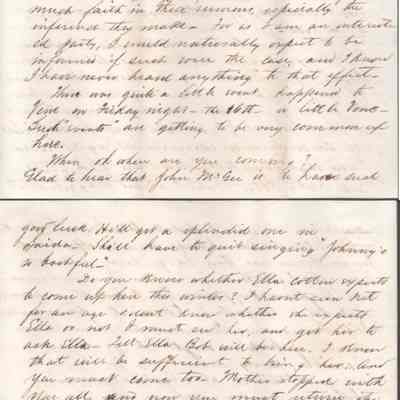 much faith in these rumors, especially the
inference they make - For as I am an interest-
ed party, I would naturally expect to be
informed if such were the case, and I know
I have never heard anything to that effect -
There was quite a little event happened to
on Friday night - the 16th - a little
Such events are getting to be very common up
here.
When oh when are you coming?
Glad to hear that John McGee is to have such
good luck. He'll get a splendid one in
I'll have to quit singing "Johnny's
so bashful" -
Do you know whether Ella Cotton expects
to come up here this winter? I havn't seen
for an age & don't know whether she expects
Ella or not. I must see her, and get her to
ask Ella - Tell Ella Bob will be here. I know
that will be sufficient to bring her. And
you must come too. Mother stopped with
you all, and now you must return the